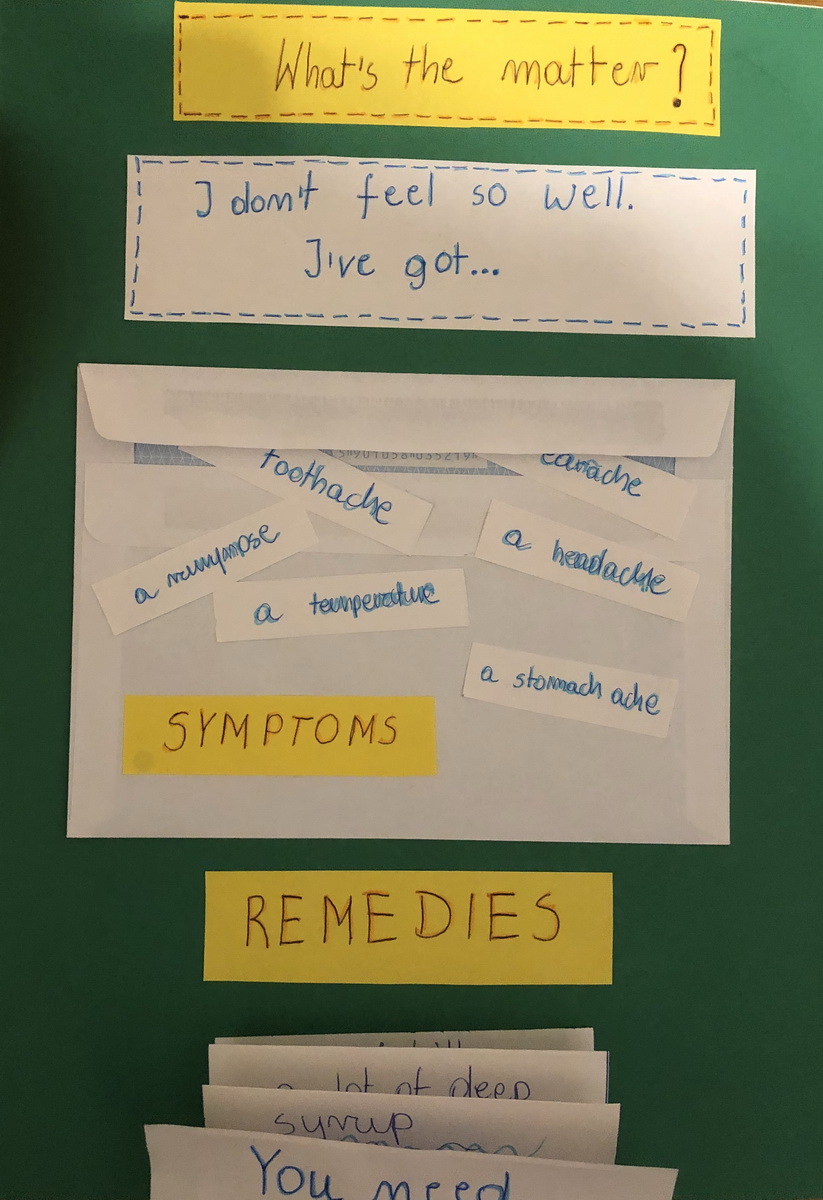 What's the matter?
I don't feel so well.
I've got...
toothache
earache
a runny nose
a headache
a temperature
a stomach ache
SYMPTOMS
REMEDIES
a lot of
syrup
You need